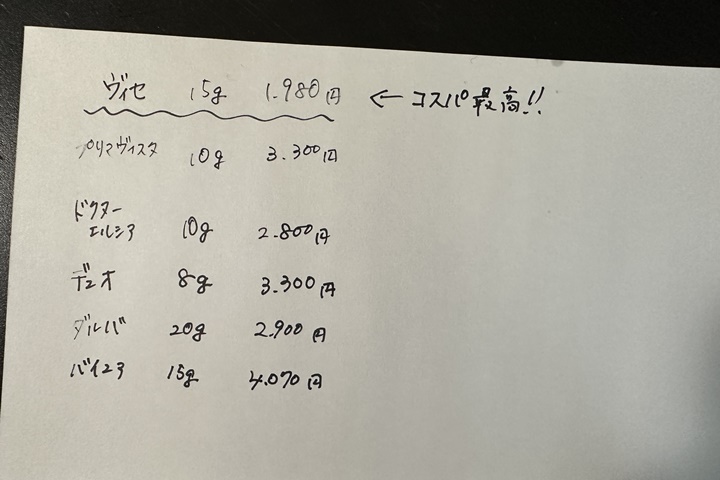 ヴィセ 15g 1.980円 ← コスパ最高!!
プリマヴィスタ 10g 3.300円
ドクター
エルシア 10g 2.800円
デュオ 8g 3.300円
ダルバ 20g 2.900円
バイユア 15g 4.070円